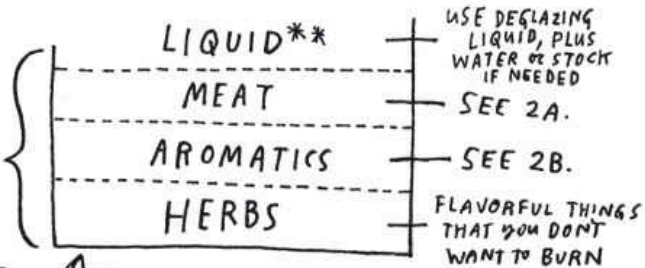 LIQUID**
USE DEGLAZING
LIQUID, PLUS
WATER or STOCK
IF NEEDED
MEAT
SEE 2A.
AROMATICS
SEE 2B.
HERBS
FLAVORFUL THINGS
THAT you DON'T
WANT TO BURN